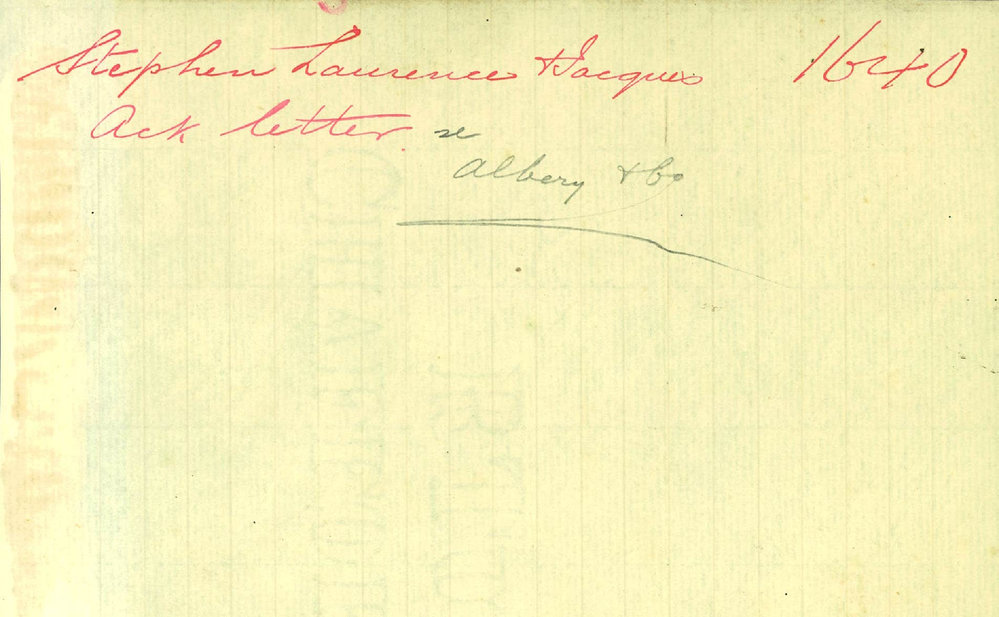 Stephen Laurence & Jacques 1640
Ack letter re
Albery & Co